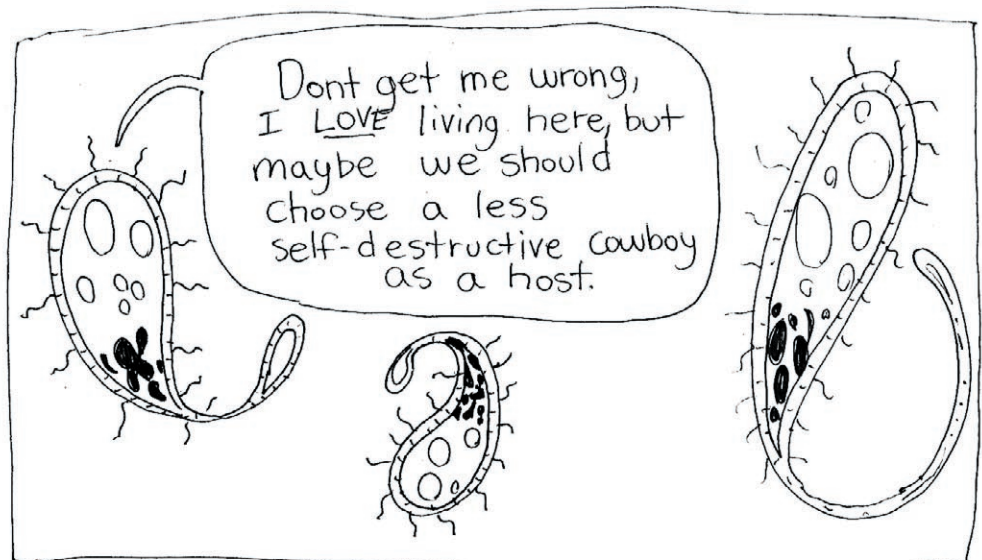 Dont get me wrong,
I LOVE living here, but
maybe we should
choose a less
self-destructive cowboy
as a host.